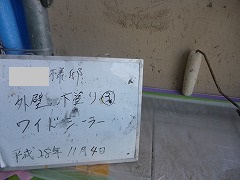 様邸
外壁 下塗り③
ワイドシーラー
平成28年11月4日